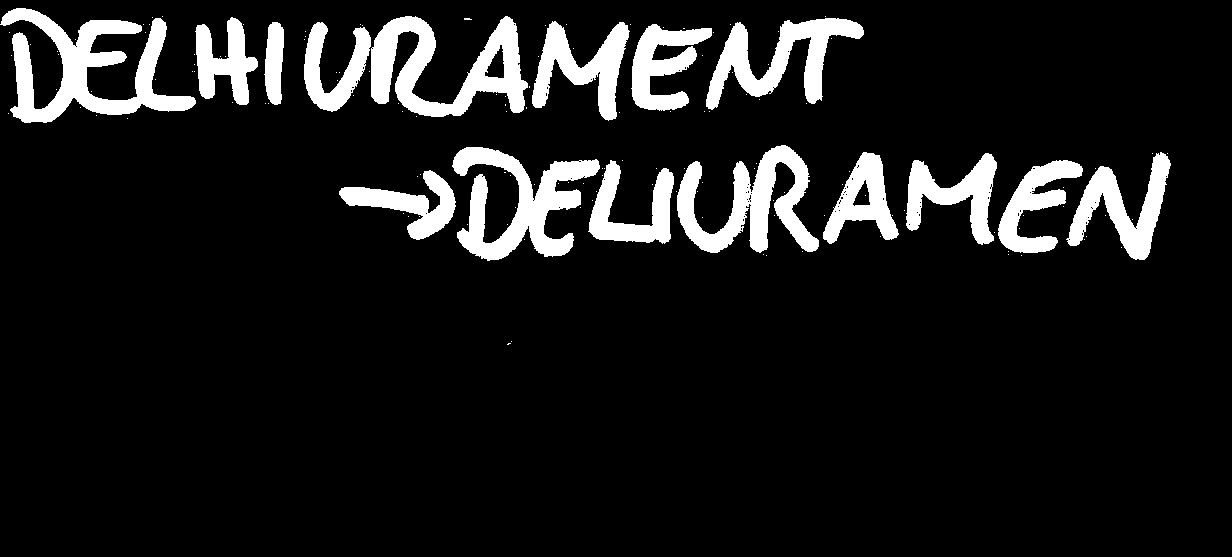 DELHIURAMENT
→DELIURAMEN